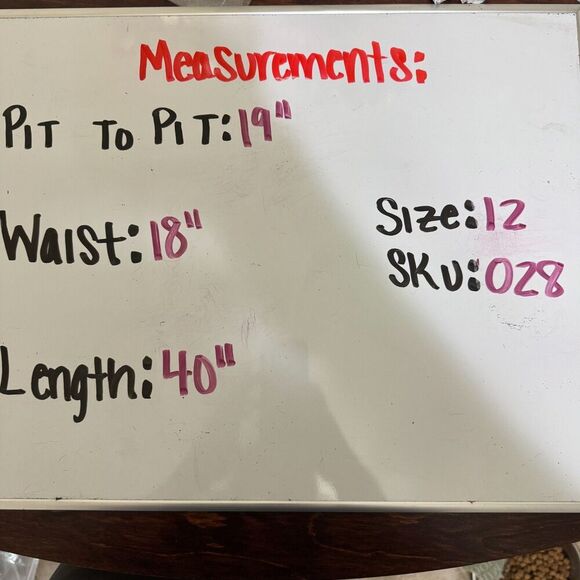 Measurements:
PIT TO PIT: 19"
Waist: 18"
Size: 12
SKU: 028
Length: 40"